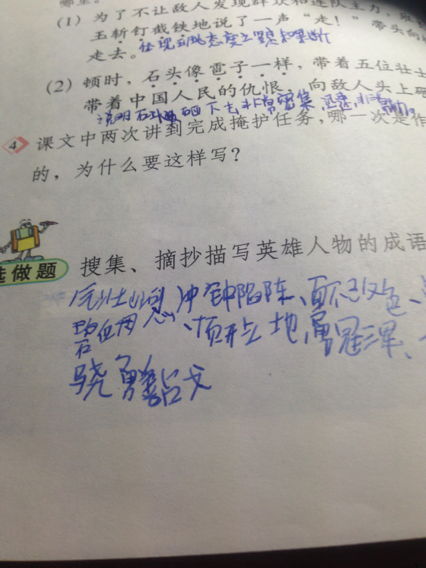 (1) 为了不让敌人发现群众和连队主力，班
玉斩钉截铁地说了一声“走！”带头向
走去。
(2) 顿时，石头像雹子一样，带着五位壮士
带着中国人民的仇恨，向敌人头上
4 课文中两次讲到完成掩护任务，哪一次是作
的，为什么要这样写？
选做题 搜集、摘抄描写英雄人物的成语
冲锋陷阵、面不改色、
顶天立地、勇冠三军、
骁勇善战